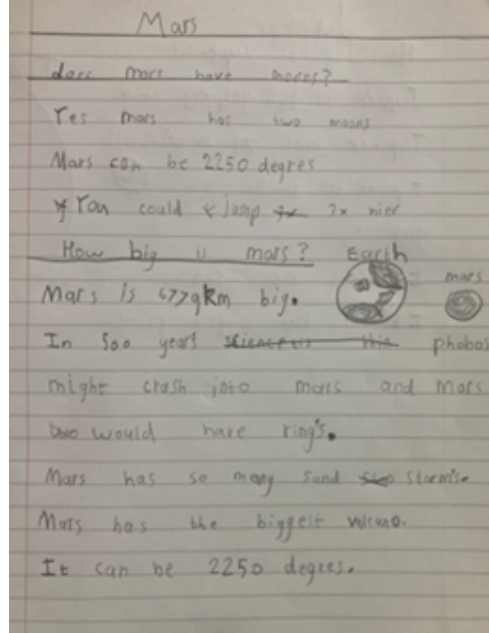 Mars
does mars have moons?
Yes mars has two moons
Mars can be 2250 degres
You could jump 2x hier
How big is mars? Earth
mars
Mars is 6779km big.
In 500 years phobos
might crash into mars and Mars
would have ring's.
Mars has so many sand storm's.
Mars has the biggest volcano.
It can be 2250 degres.